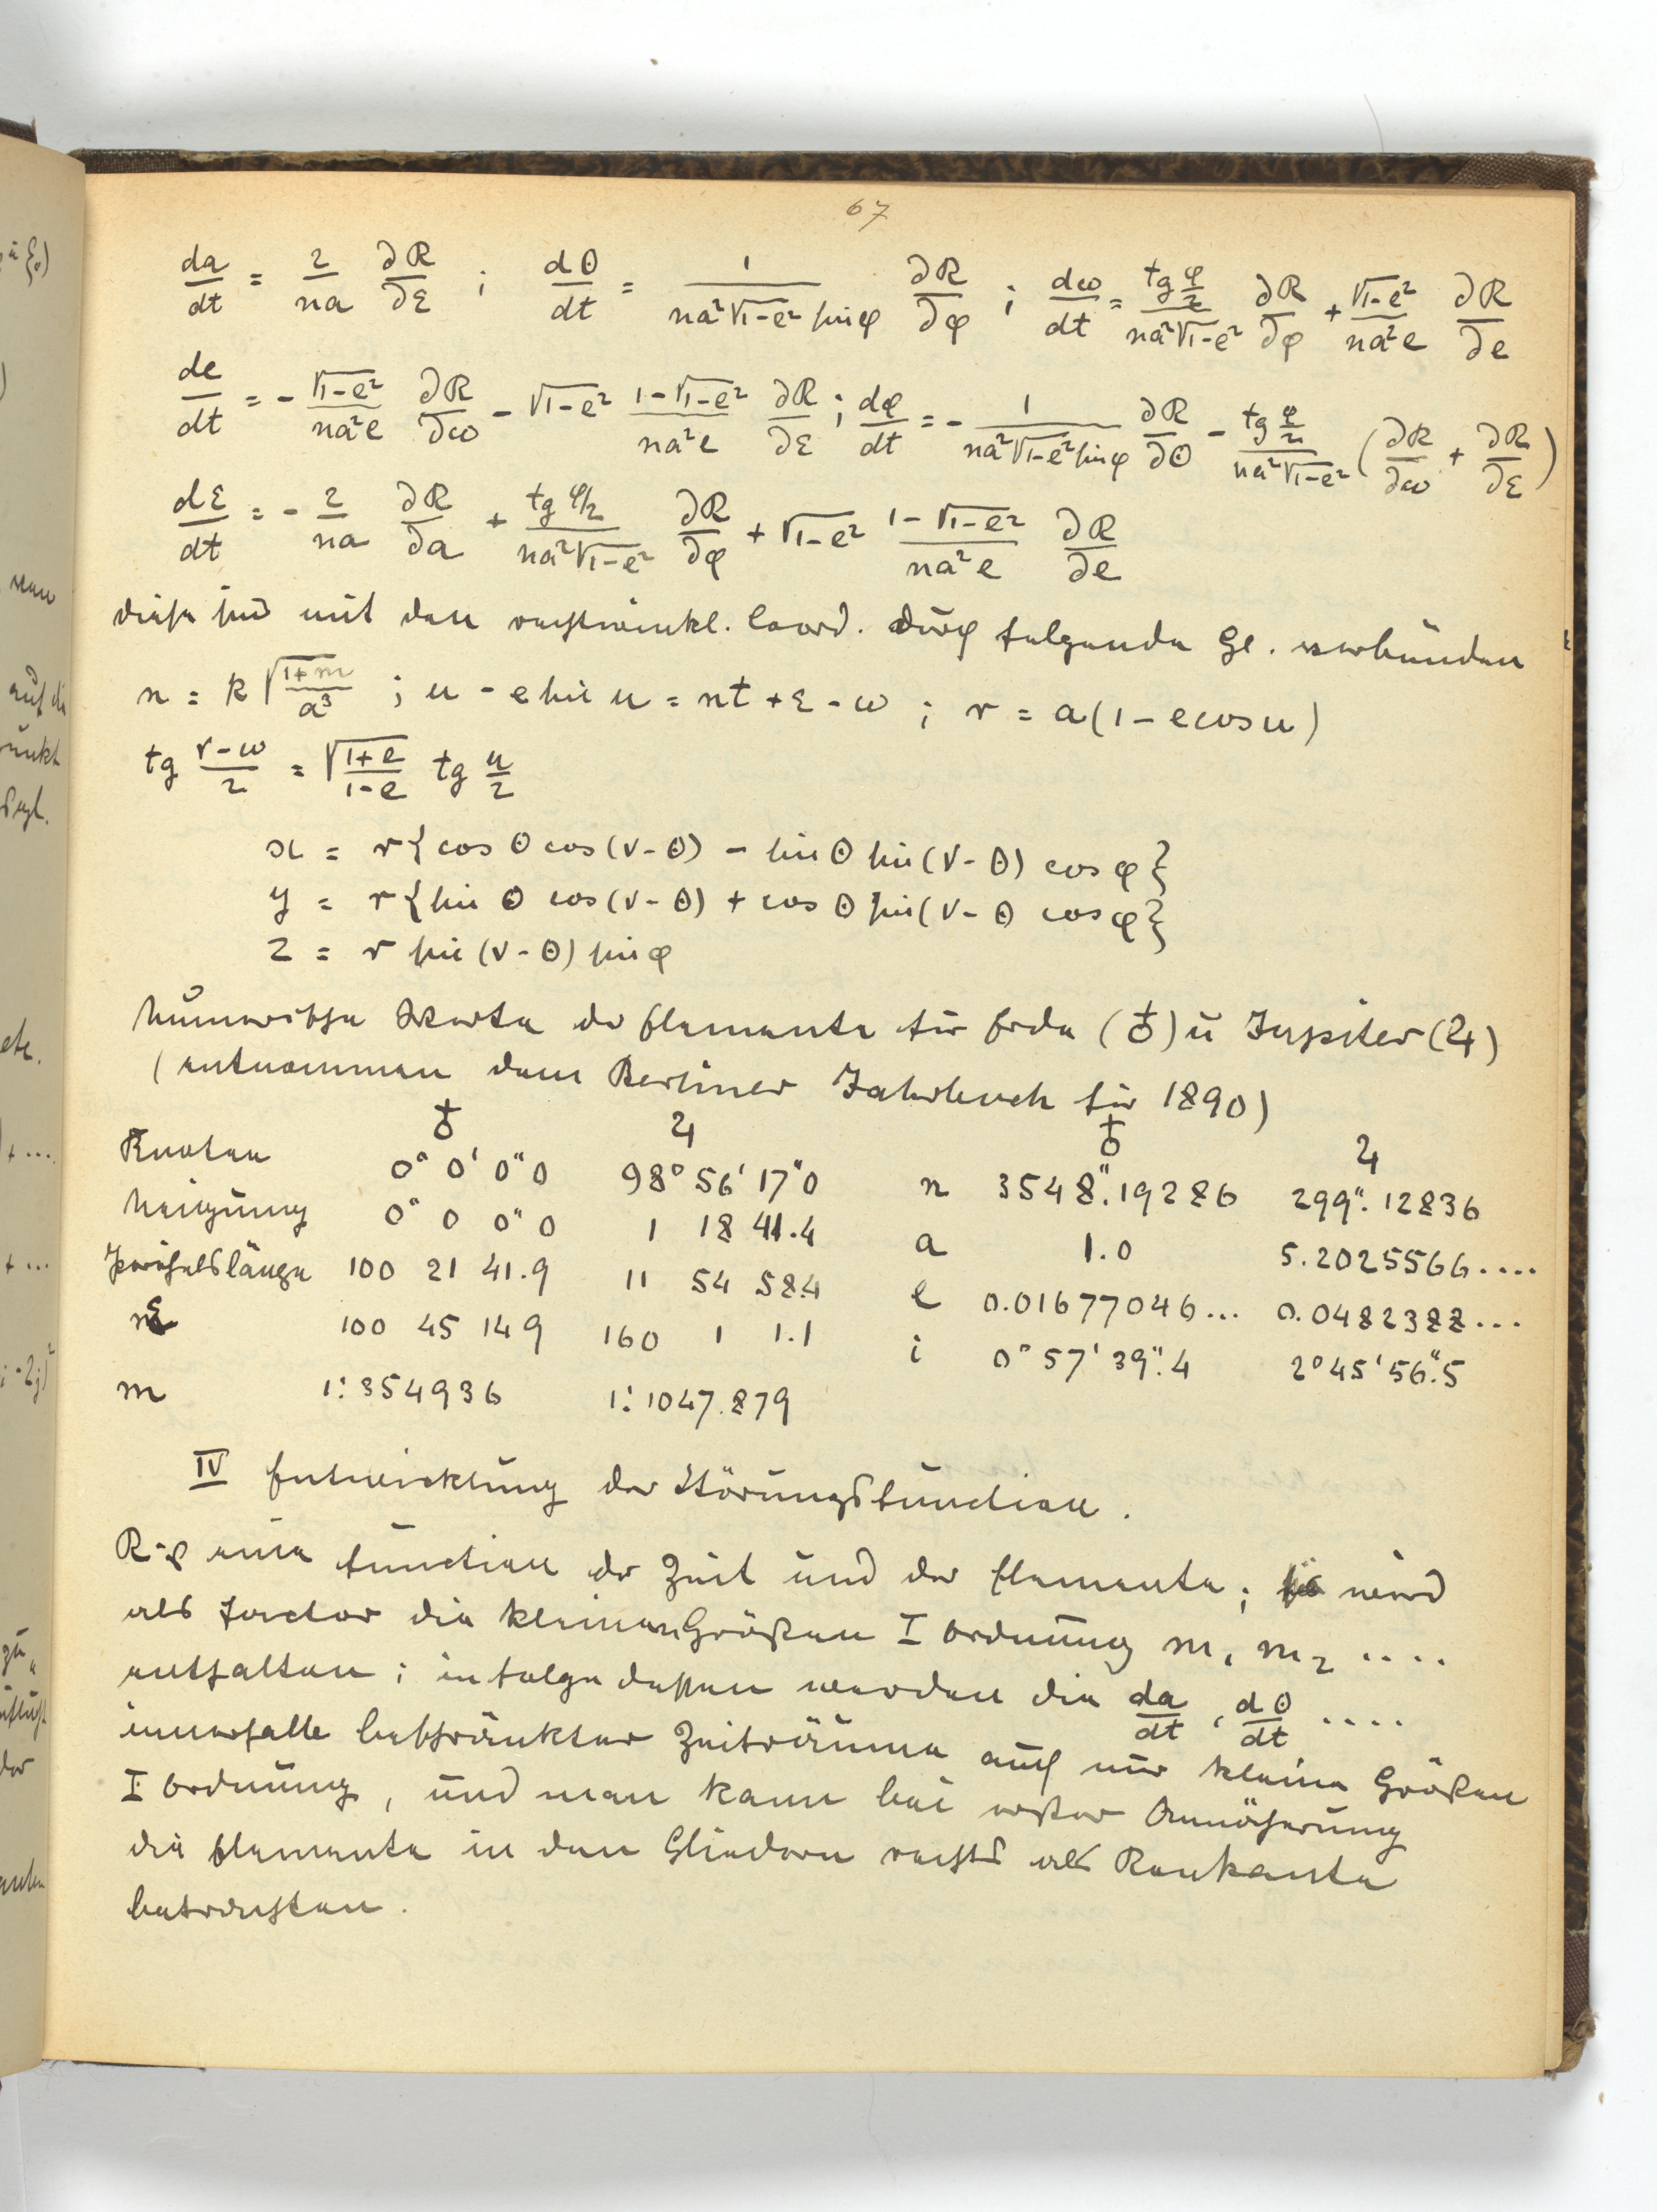 67
da/dt = 2/na ∂R/∂ε ; dθ/dt = 1/(na²√1-e² sin φ) ∂R/∂φ ; dω/dt = tg φ/2 /(na²√1-e²) ∂R/∂φ + √1-e²/(na²e) ∂R/∂e
de/dt = - √1-e²/(na²e) ∂R/∂ω - √1-e² (1-√1-e²)/(na²e) ∂R/∂ε ; dφ/dt = - 1/(na²√1-e² sin φ) ∂R/∂θ - tg φ/2 /(na²√1-e²) (∂R/∂ω + ∂R/∂ε)
dε/dt = - 2/na ∂R/∂a + tg φ/2 /(na²√1-e²) ∂R/∂φ + √1-e² (1-√1-e²)/(na²e) ∂R/∂e
diese sind mit den rechtwinkl. Coord. durch folgende Gl. verbunden
n = k √(1+m)/a³ ; u - e sin u = nt + ε - ω ; r = a(1 - e cos u)
tg (v-ω)/2 = √(1+e)/(1-e) tg u/2
x = r{cos θ cos(v-θ) - sin θ sin(v-θ) cos φ}
y = r{sin θ cos(v-θ) + cos θ sin(v-θ cos φ}
z = r sin(v-θ) sin φ
Numerische Werte der Elemente für Erde (♁) u Jupiter (♃)
(entnommen dem Berliner Jahrbuch für 1890)
♁ ♃ ♁ ♃
Knoten 0° 0' 0"0 98° 56' 17"0 n 3548".19286 299".12836
Neigung 0° 0 0"0 1 18 41.4 a 1.0 5.2025566....
Perihelslänge 100 21 41.9 11 54 58.4 e 0.01677046... 0.0482388...
ε 100 45 14 9 160 1 1.1 i 0° 57' 39".4 2° 45' 56".5
m 1:354936 1:1047.879
IV Entwicklung der Störungsfunction.
R ist eine Function der Zeit und der Elemente; sie wird
als Factor die kleinen Größen I Ordnung m₁ m₂ ....
enthalten; infolge dessen werden die da/dt, dθ/dt ....
innerhalb beschränkter Zeiträume auch nur kleine Größen
I Ordnung, und man kann bei erster Annäherung
die Elemente in den Gliedern rechts als Konstante
betrachten.